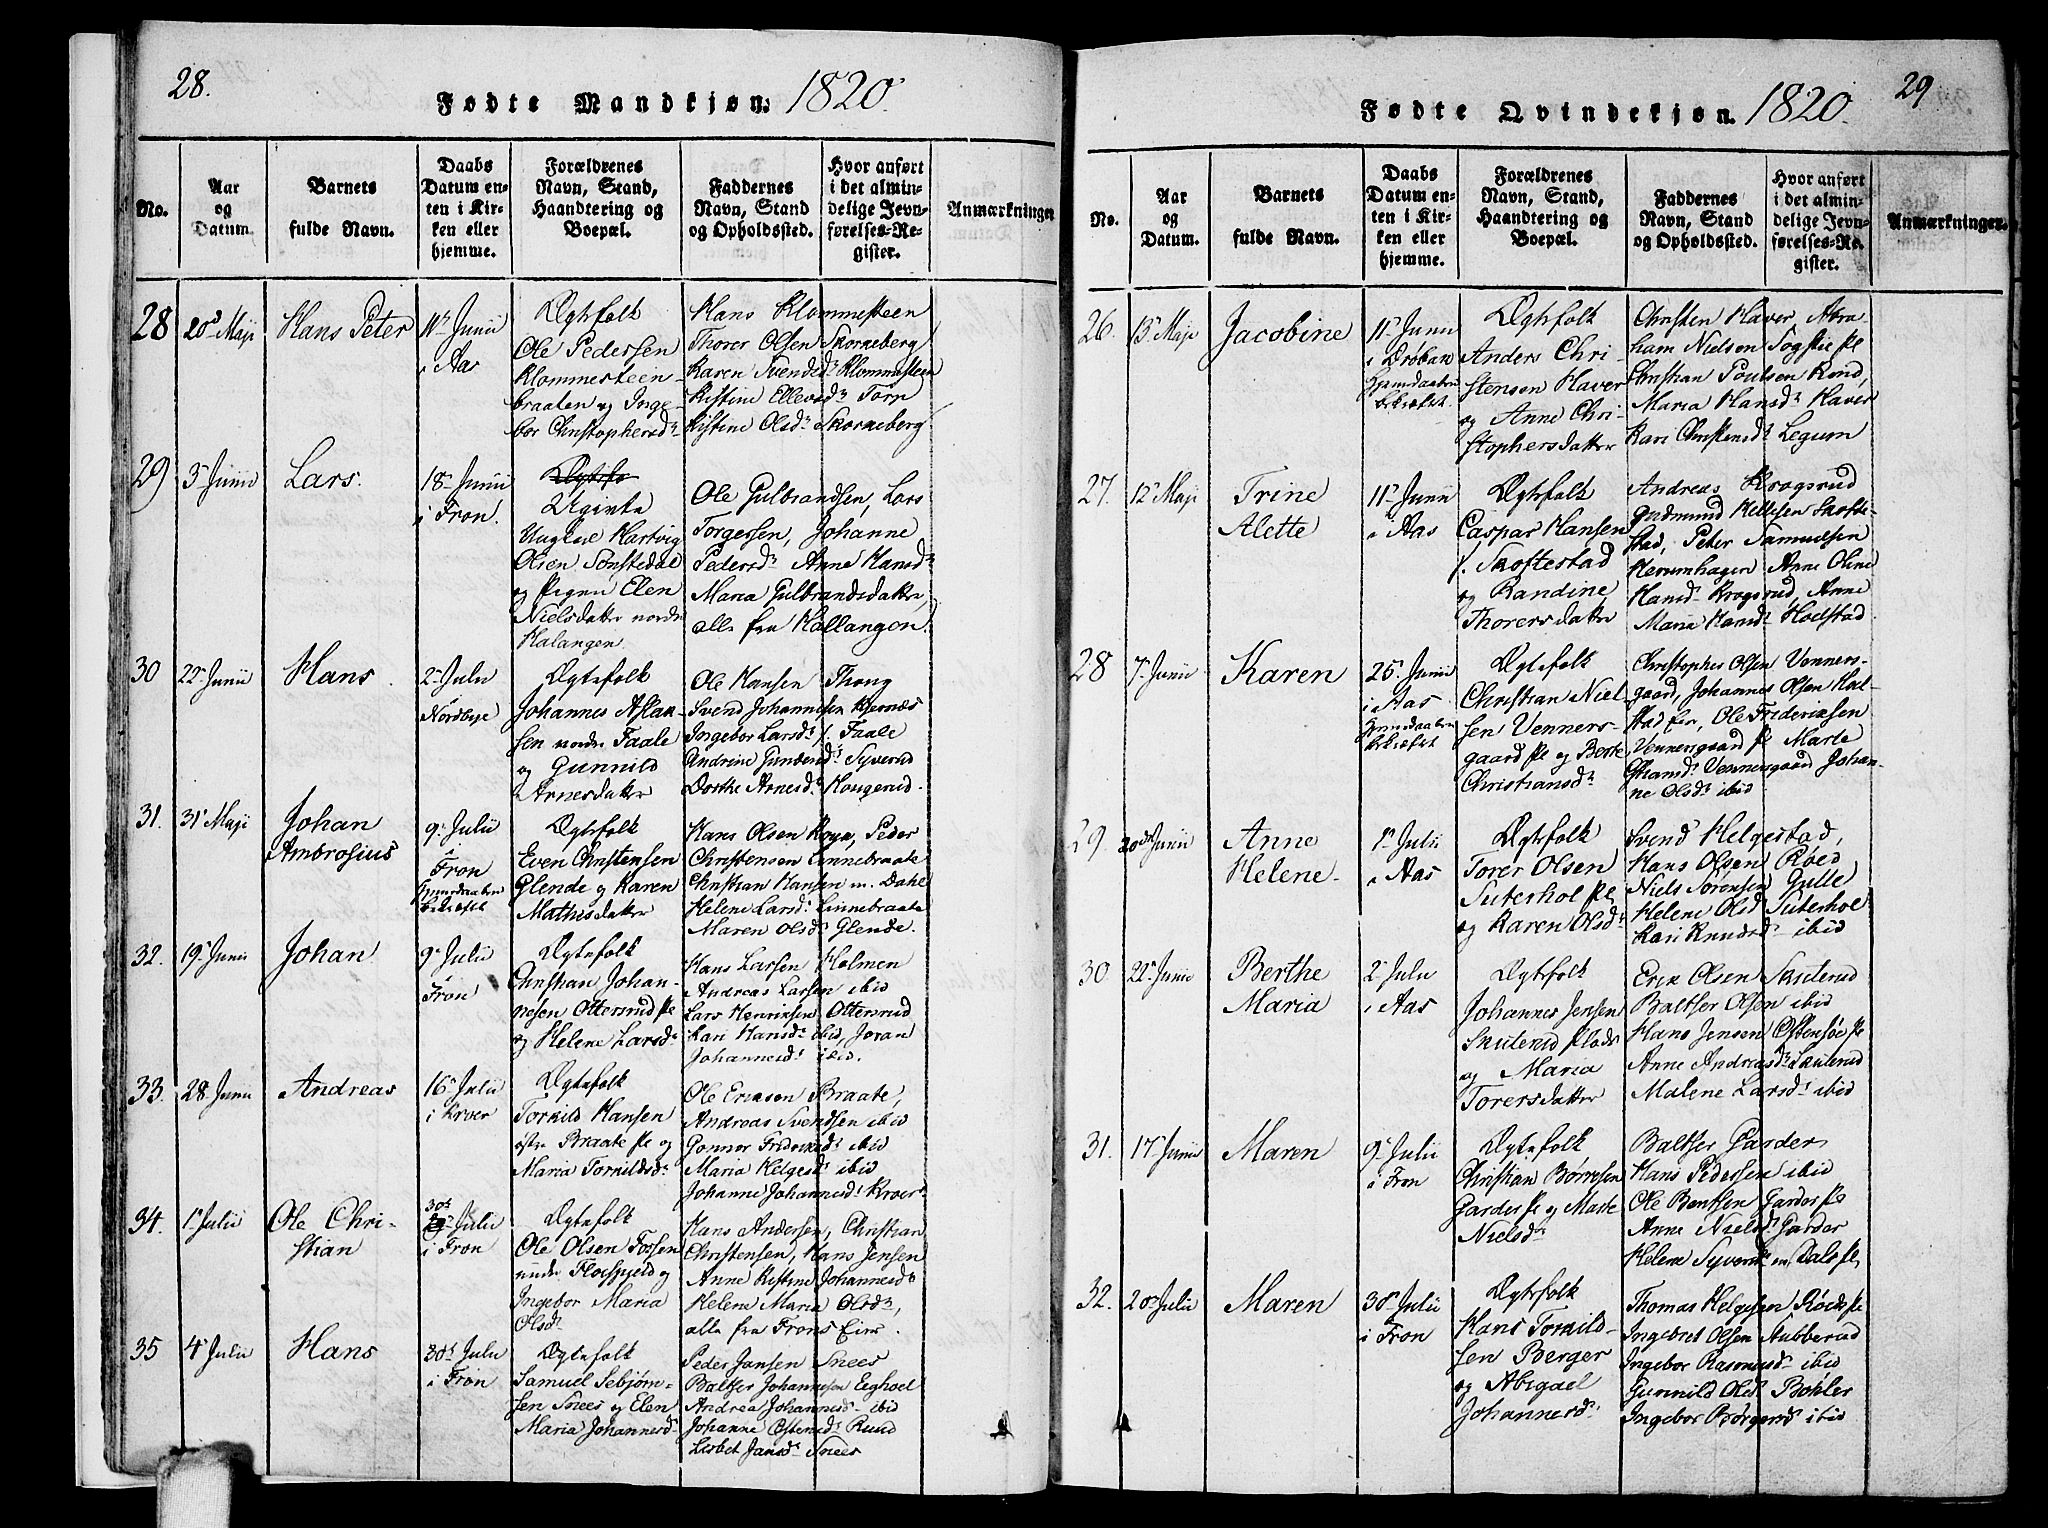 28.
Fødte Mandkjøn: 1820.
No.
Aar
og
Datum.
Barnets
fulde Navn.
Daabs
Datum en-
ten i Kir-
ken eller
hjemme.
Forældrenes
Navn, Stand,
Haandtering og
Boepæl.
Faddernes
Navn, Stand
og Opholdssted.
Hvor anført
i det almin-
delige Jevn-
førelses-Re-
gister.
Anmærkninger
28
20de Maji
Hans Peter
11te Junii
i Aas
Ægtefolk
Ole Pedersen
Klommesteen-
braaten og Inge-
bor Christophersdr
Hans Klommesteen
Thorer Olsen Skorneberg
Karen Svendsdr Klommesteen
Kistine Ellevsdr Torn
Kistine Olsdr Skorneberg
29
3de Junii
Lars.
18de Junii
i Fron.
Ugivte
Ungkarl Hartvig
Olsen Sønstedal
og Pigen Elen
Nielsdatter nordre
Halangen
Ole Gulbrandsen, Lars
Torgersen, Johanne
Pedersdr Anne Hansdr
Maria Gulbrandsdatter,
alle fra Hallangen.
30
22de Junii
Hans
2de Julii
Nordbye
Ægtefolk
Johannes Aslak-
sen nordre Faale
og Gunnild
Arnesdatter
Ole Hansen Thong
Svend Johannesen Kjernæs
Ingebor Larsdr s. Faale
Andrine Gundersdr Syverud
Dorthe Arnesdr Haugerud.
31.
31te Maji
Johan
Ambrosius
9de Julii
i
Fron
Hjemdaaben
bekræftet
Ægtefolk
Even Christensen
Glende og Karen
Mathisdatter
Hans Olsen Krogn, Peder
Christensen Linnebraate
Christian Hansen m. Dahl
Helene Larsdr Linnebraate
Maren Olsdr Glende.
32.
19de Junii
Johan
9de Julii
i
Fron
Ægtefolk
Christian Johan-
nesen Ottersrud Pl
og Helene Larsdr
Hans Larsen Holmen
Andreas Larsen ibid
Lars Henriksen Ottersrud
Kari Hansdr ibid, Joran
Johannesdr ibid.
33.
28de Junii
Andreas
16de Julii
i Kroer
Ægtefolk
Torkild Hansen
østre Braate Pl og
Maria Torkildsdr
Ole Eriksen Braate,
Andreas Svendsen ibid
Gonnor Frideriksdr ibid
Maria Helgesdr ibid
Johanne Johannesdr Kroer.
34.
1te Julii
Ole Chri-
stian
30te
Julii
i Fron
Ægtefolk
Ole Olsen Fossen
under Floespjeld og
Ingebor Maria
Olsdr
Hans Andersen, Christian
Christensen, Hans Jensen
Anne Kistine Johannesdr
Helene Maria Olsdr,
alle fra Frons Eier.
35
4de Julii
Hans
30te Julii
i Fron
Ægtefolk
Samuel Sebjørn-
sen Snees og Elen
Maria Johannesdr
Peder Jansen Snees
Baltser Johannesen Eeghoel
Andrea Johannesdr ibid
Johanne Østensdr Ruud
Lisbet Jansdr Snees
29
Fødte Qvindekjøn. 1820.
No.
Aar
og
Datum.
Barnets
fulde Navn.
Daabs
Datum en-
ten i Kir-
ken eller
hjemme.
Forældrenes
Navn, Stand,
Haandtering og
Boepæl.
Faddernes
Navn, Stand
og Opholdssted.
Hvor anført
i det almin-
delige Jevn-
førelses-Re-
gister.
Anmærkninger.
26.
13de Maji
Jacobine
11te Junii
i Drøbak
Hjemdaaben
bekræftet.
Ægtefolk
Anders Chri-
stensen Haver
og Anne Chri-
stophersdatter
Christen Haver Abra-
ham Nielsen Togstie Pl
Christian Poulsen Rend,
Maria Hansdr Haver
Kari Christensdr Legum
27.
12te Maji
Trine
Alette
11te Junii
i Aas
Ægtefolk
Caspar Hansen
s. Skoftestad
og Randine
Thorersdatter
Andreas Krogsrud
Gudmund Kittilsen Skofte-
stad, Peter Samuelsen
Herumhagen Anne Oline
Hansdr Krogsrud, Anne
Maria Hansdr Hodstad
28
7de Junii
Karen
25de Junii
i Aas
Hjemdaaben
bekræftet
Ægtefolk
Christian Niel-
sen Venners-
gaard Pl og Berte
Christiansdr
Christopher Olsen Venners-
gaard, Johannes Olsen Hal-
stad eier, Ole Frideriksen
Vennersgaard Pl Marte
Hansdr Vennersgaard Johan-
ne Olsdr ibid
29.
20de Junii
Anne
Helene
1te Julii
i Aas
Ægtefolk
Torer Olsen
Suterhol Pl
og Karen Olsdr
Svend Helgestad,
Hans Olsen Røed
Niels Sørensen Gulle
Helene Olsd Suterhol
Kari Knudsd ibid
30
22de Junii
Berthe
Maria
2de Julii
i Aas
Ægtefolk
Johannes Jensen
Skuterud Plads
og Maria
Torersdatter
Erik Olsen Skuterud
Baltser Olsen ibid
Hans Jensen Østensøe Pl
Anne Andreasdr Skuterud
Malene Larsdr ibid
31.
17de Junii
Maren
9de Julii
i Fron
Ægtefolk
Christian Børresen
Garder Pl og Marte
Nielsdr
Baltser Garder
Hans Pedersen ibid
Ole Bentsen Garder Pl
Anne Nielsdr Garder
Helene Syversdr m. Dals Pl,
32.
20de Julii
Maren
30te Julii
i Fron
Ægtefolk
Hans Torkild-
sen Berger
og Abigael
Johannesdr
Thomas Helgesen Røeds Pl
Ingebret Olsen Stubberud
Ingebor Rasmusdr ibid
Gunnild Olsd Bohler
Ingebor Børgersd ibid